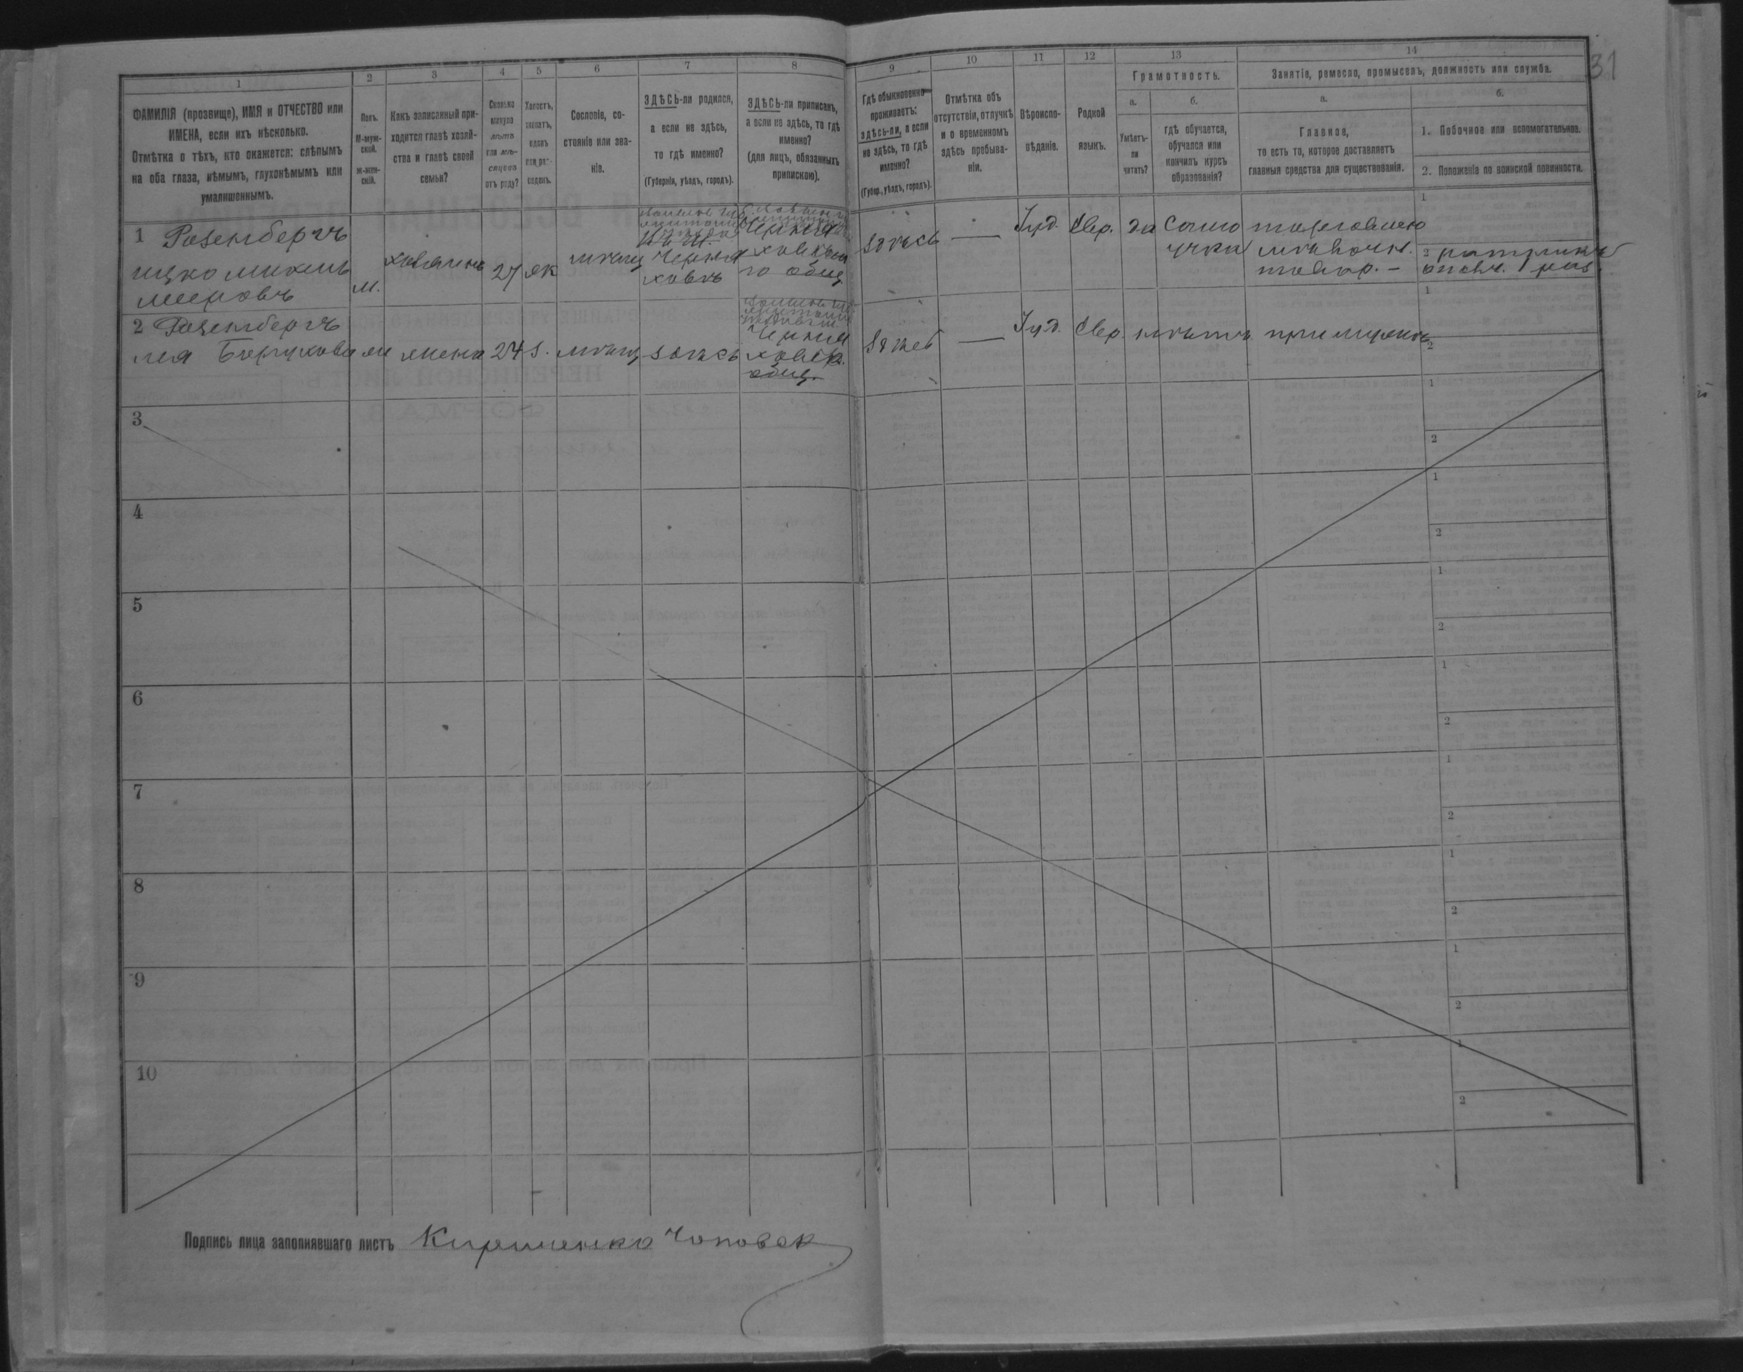 31
1
2
3
4
5
6
7
8
9
10
11
12
13
14
ФАМИЛІЯ (прозвище), ИМЯ и ОТЧЕСТВО или
ИМЕНА, если ихъ нѣсколько.
Отмѣтка о тѣхъ, кто окажется: слѣпымъ
на оба глаза, нѣмымъ, глухонѣмымъ или
умалишеннымъ.
Полъ.
М-муж-
ской.
Ж-жен-
скій.
Какъ записанный при-
ходится главѣ хозяй-
ства и главѣ своей
семьи?
Сколько
минуло
лѣтъ
или мѣ-
сяцевъ
отъ роду?
Холостъ,
женатъ,
вдовъ
или раз-
веденъ.
Сословіе, со-
стояніе или зва-
ніе.
ЗДѢСЬ-ли родился,
а если не здѣсь,
то гдѣ именно?
(Губернія, уѣздъ, городъ).
ЗДѢСЬ-ли приписанъ,
а если не здѣсь, то гдѣ
именно?
(для лицъ, обязанныхъ
припискою).
Гдѣ обыкновенно
проживаетъ:
здѣсь-ли, а если
не здѣсь, то гдѣ
именно?
(Губер., уѣздъ, городъ).
Отмѣтка объ
отсутствіи, отлучкѣ
и о временномъ
здѣсь пребыва-
ніи.
Вѣроиспо-
вѣданіе.
Родной
языкъ.
Грамотность.
а.
Умѣетъ-
ли
читать?
б.
гдѣ обучается,
обучался или
кончилъ курсъ
образованія?
Занятіе, ремесло, промыселъ, должность или служба.
а.
Главное,
то есть то, которое доставляетъ
главныя средства для существованія.
б.
1. Побочное или вспомогательное.
2. Положеніе по воинской повинности.
1 Розенбергъ
Ицко
Мееровъ
М.
хозяинъ
27
ж
мѣщ
Черня
ховъ
Черня
ховскаго
общ
здѣсь
—
Іуд.
Евр.
да
Само
учка
торговля
товар. –
1
2
2 Розенбергъ
Лея Борухова
жена
24
з.
мѣщ
здѣсь
Черня
ховск.
общ.
здѣсь
—
Іуд.
Евр.
нѣтъ
при мужѣ
1
2
3
1
2
4
1
2
5
1
2
6
1
2
7
1
2
8
1
2
9
1
2
10
1
2
Подпись лица заполнявшаго листъ